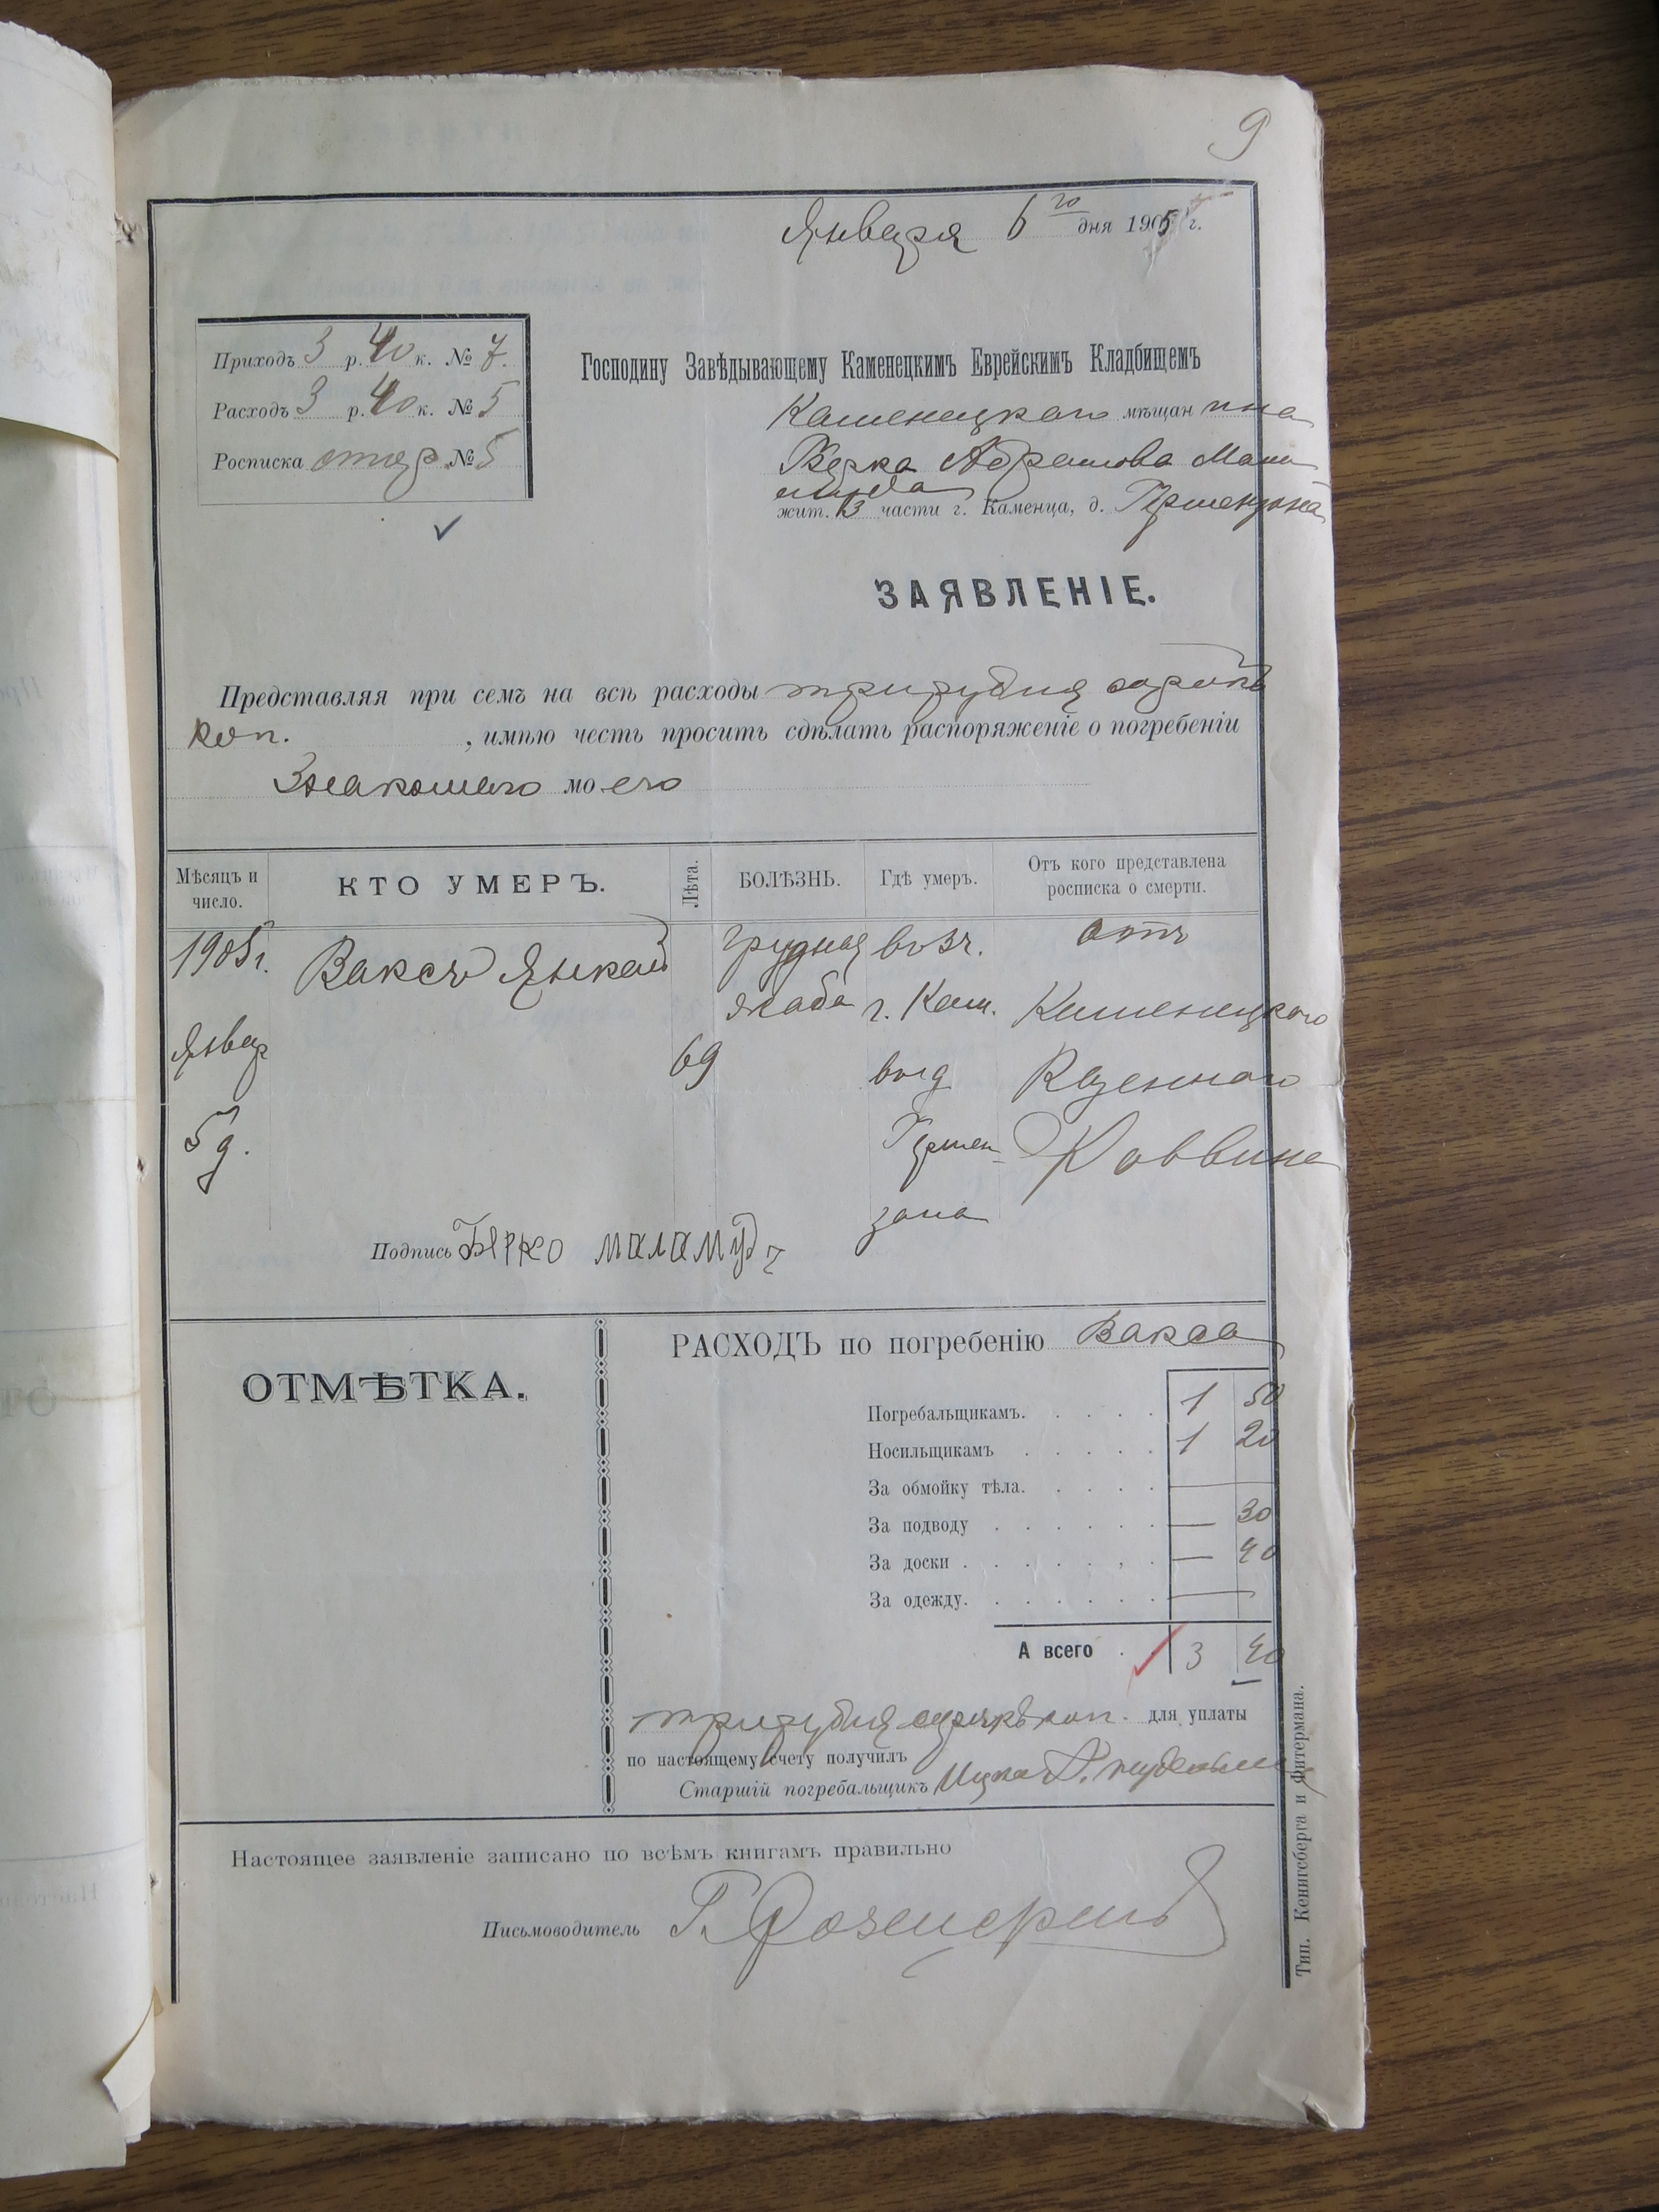 9
Января 6го дня 1905 г.
Приходъ 3 р. 40 к. № 7.
Расходъ 3 р. 40 к. № 5
Росписка № 5
Господину Завѣдывающему Каменецкимъ Еврейскимъ Кладбищемъ
Каменецкого мѣщанина
Берка Абрамова Мала
муда
жит. 3 части г. Каменца, д.
ЗАЯВЛЕНІЕ.
Представляя при семъ на всѣ расходы три рубля сорокъ
коп. , имѣю честь просить сдѣлать распоряженіе о погребеніи
Знакомаго моего
Мѣсяцъ и число.
КТО УМЕРЪ.
Лѣта.
БОЛѢЗНЬ.
Гдѣ умеръ.
Отъ кого представлена росписка о смерти.
1905 г.
Январ
5 д.
Ваксъ Янкель
69
грудная
жаба
г. Кам.
отъ
Каменецкого
Казеннаго
Раввина
Подпись Берко маламуд
ОТМѢТКА.
РАСХОДЪ по погребенію Вакса
Погребальщикамъ. 1 50
Носильщикамъ 1 20
За обмойку тѣла. —
За подводу — 30
За доски — 40
За одежду. —
А всего 3 40
три рубля сорокъ коп. для уплаты
по настоящему счету получилъ
Старшій погребальщикъ Ицко
Настоящее заявленіе записано по всѣмъ книгамъ правильно
Письмоводитель Г.
Тип. Кенигсберга и Фитермана.